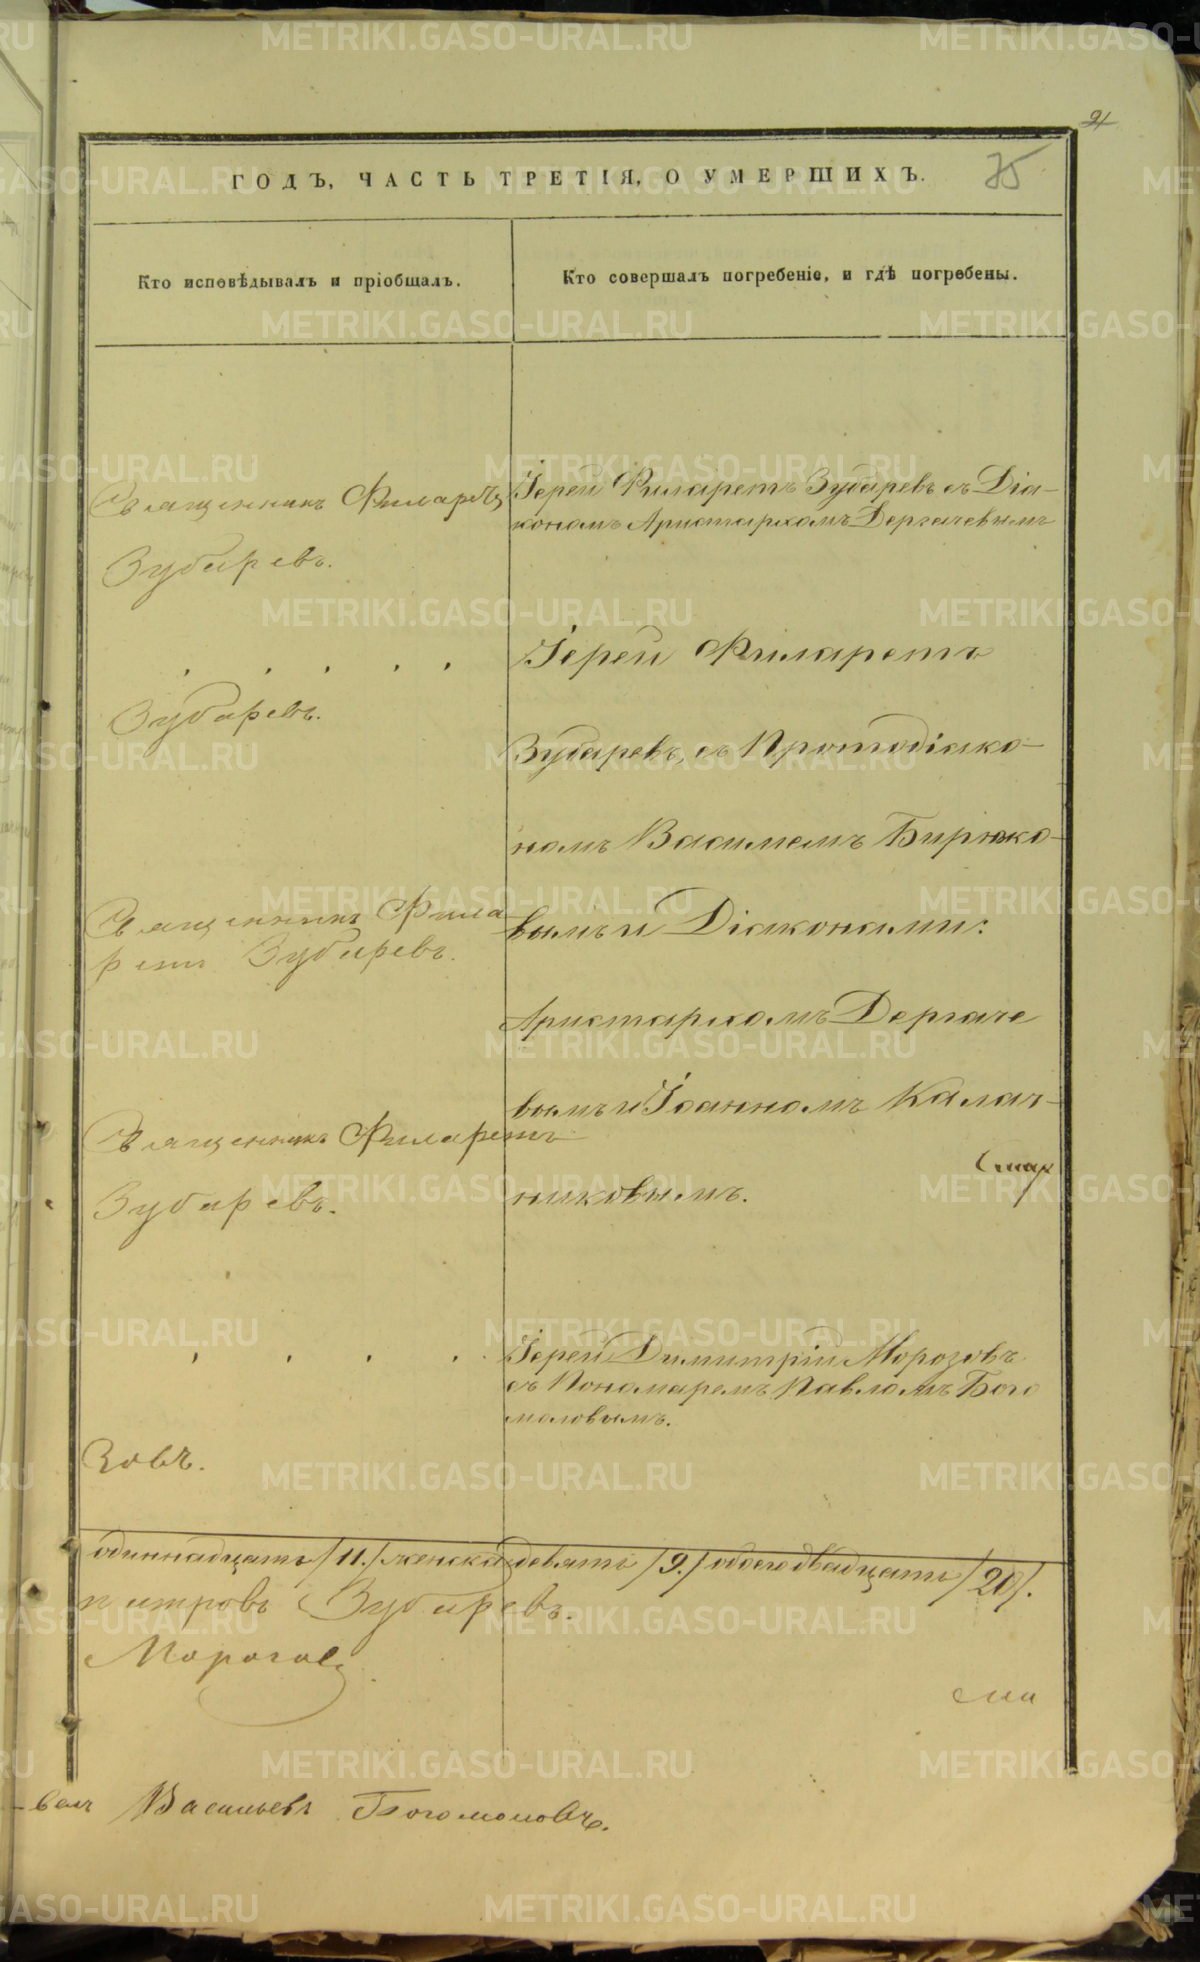 21
ГОДЪ, ЧАСТЬ ТРЕТІЯ, О УМЕРШИХЪ.
75
Кто исповѣдывалъ и пріобщалъ.
Кто совершалъ погребеніе, и гдѣ погребены.
Священникъ Филаретъ
Зубаревъ.
Іерей Филаретъ Зубаревъ съ Діа-
кономъ Аристархомъ Дергачевымъ
Зубаревъ.
Іерей Филаретъ
Зубаревъ, съ Протодіако-
номъ Василіемъ Бирюко-
вымъ и Діаконами:
Аристархомъ Дергаче
вымъ и Іоанномъ Калач-
никовымъ.
Священникъ Фила
ретъ Зубаревъ.
Священникъ Филаретъ
Зубаревъ.
Іерей Димитрій Морозовъ
съ Пономаремъ Павломъ Бого
моловымъ.
Зовъ.
одиннадцать /11./ женска девять /9./ обоего двадцать /20/.
Зубаревъ.
Морозовъ
Васильевъ Богомоловъ.
METRIKI.GASO-URAL.RU